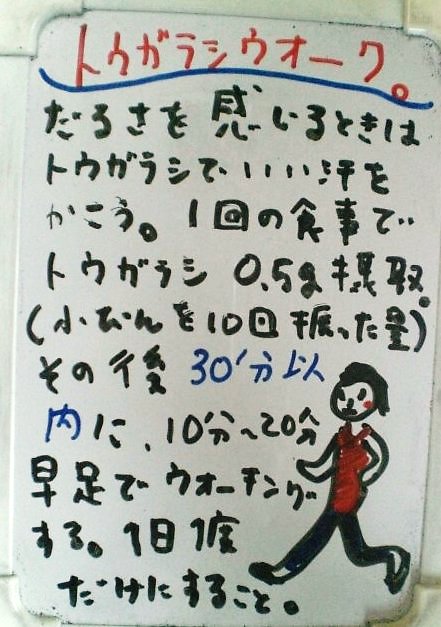 トウガラシウオーク。
だるさを感じるときは
トウガラシでいい汗を
かこう。1回の食事で
トウガラシ0.5g摂取。
(小びんを10回振った量)
その後30分以
内に、10分〜20分
早足でウオーキング
する。1日1度
だけにすること。